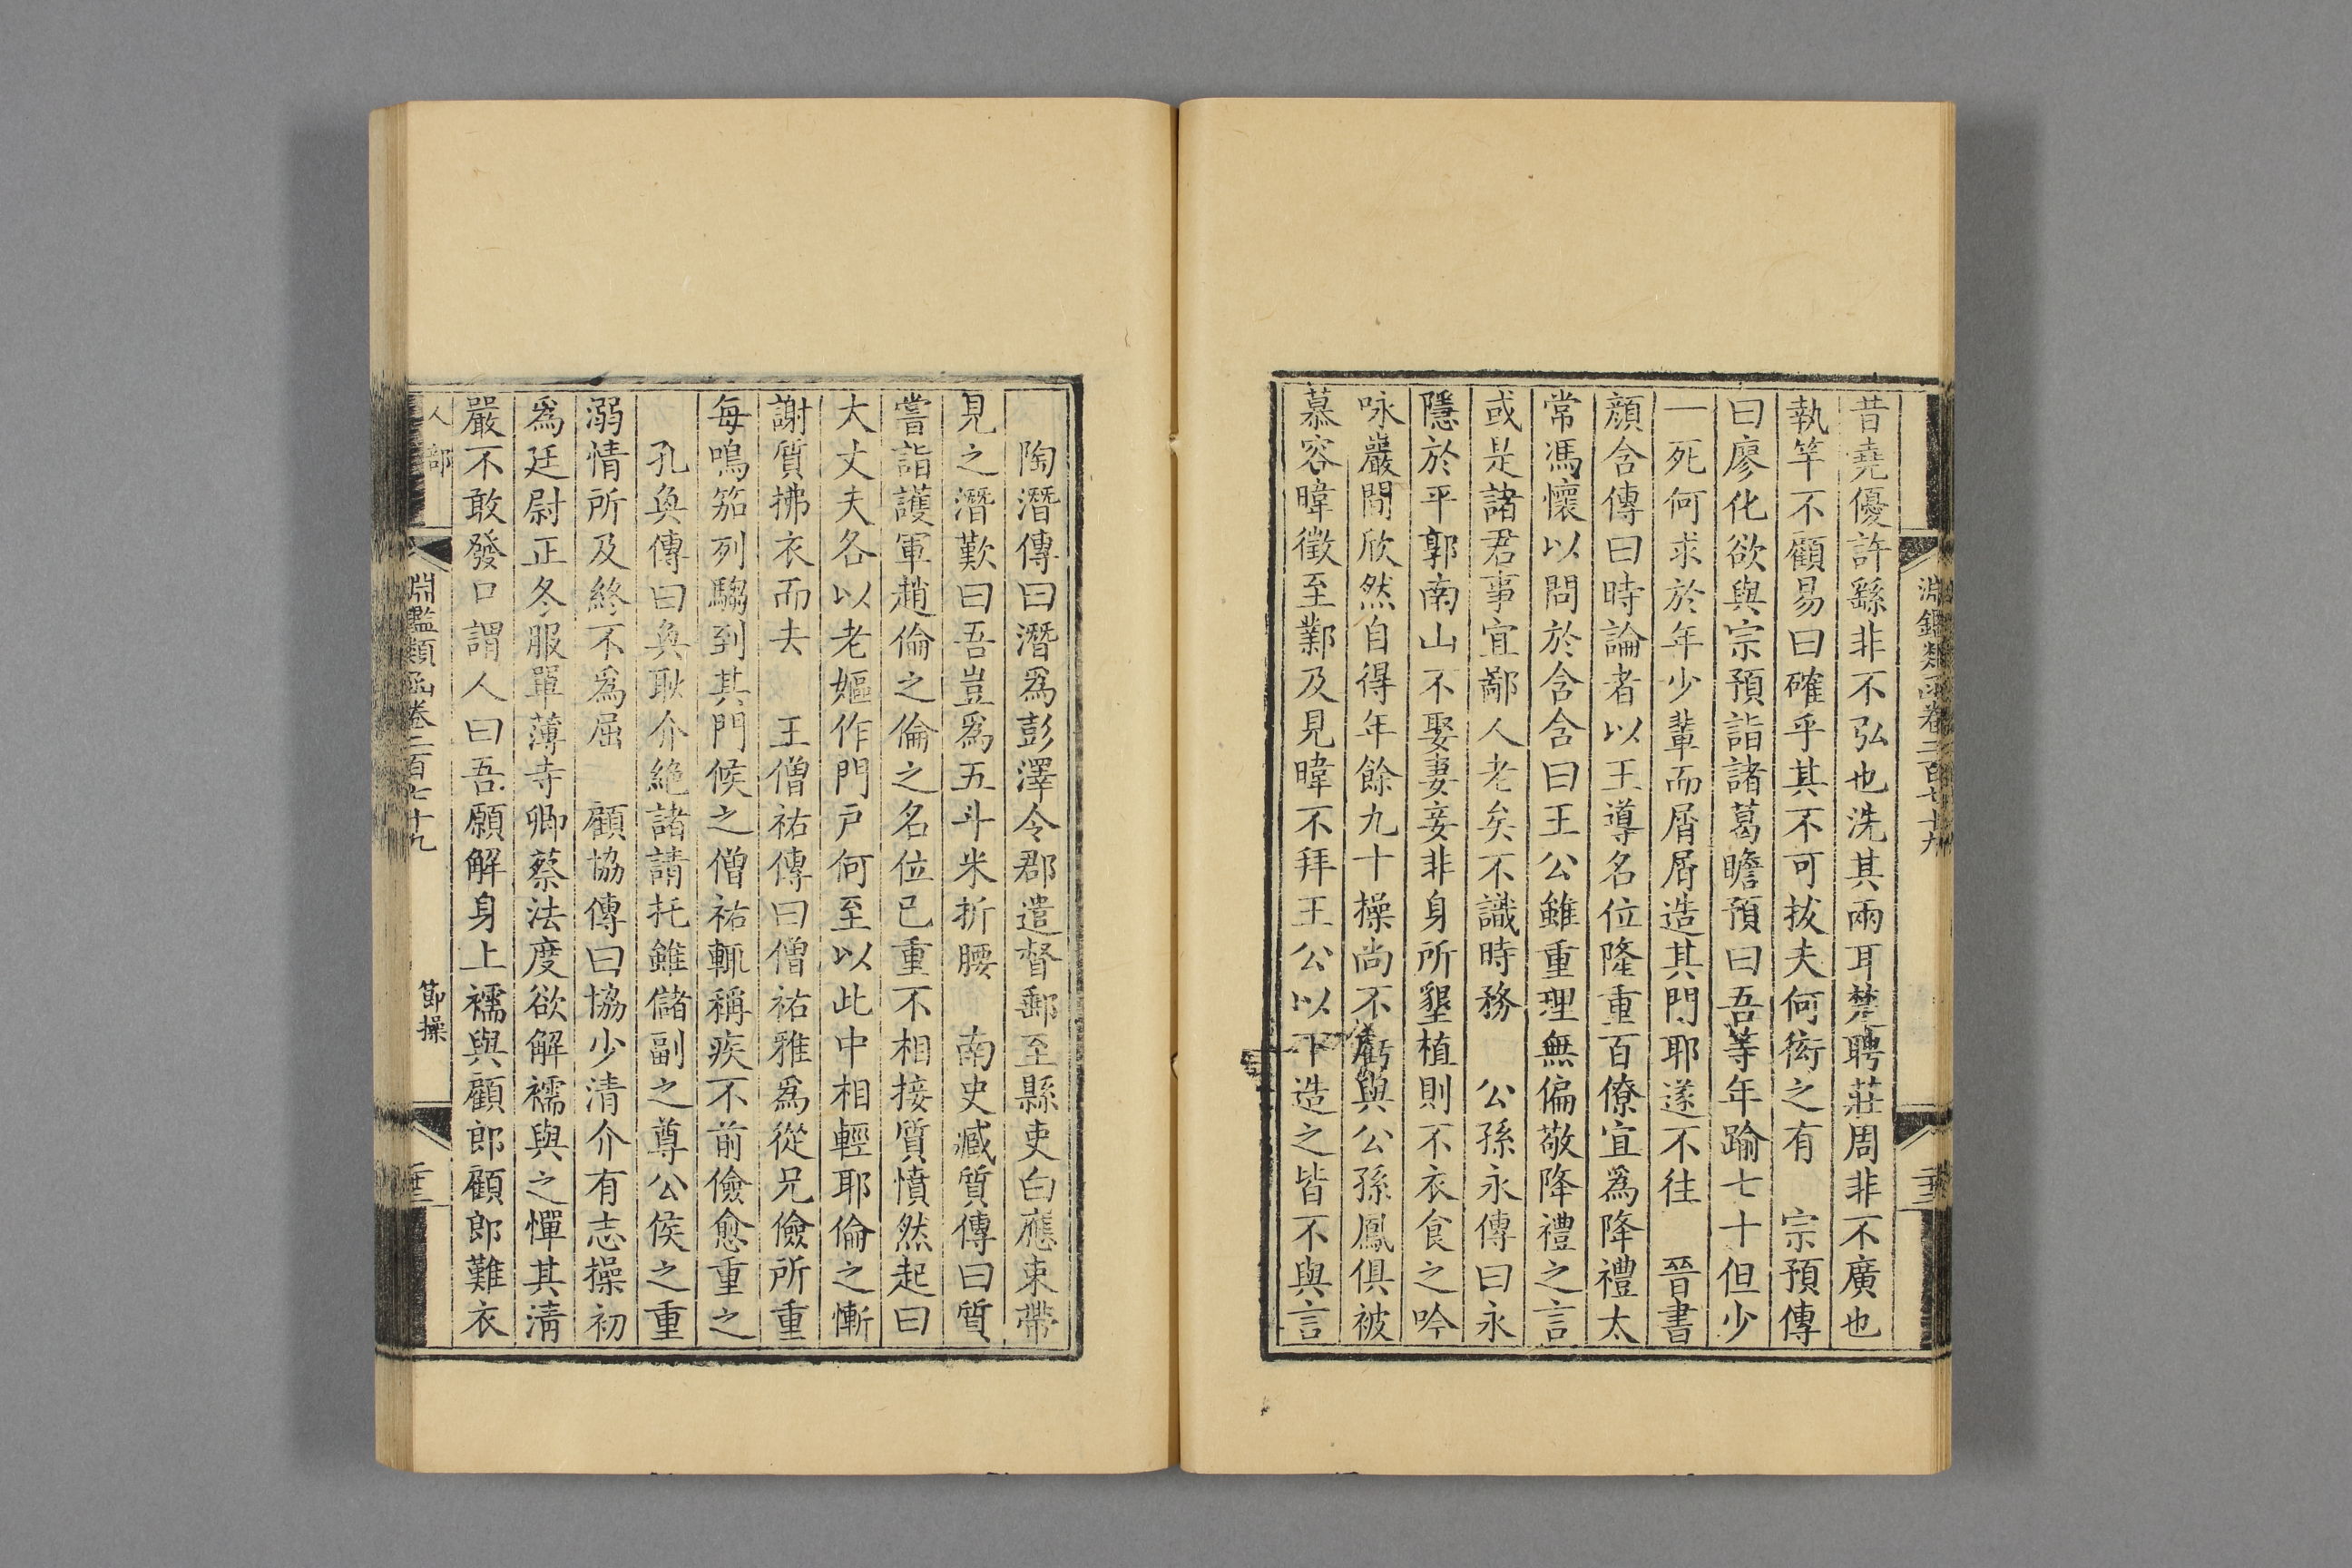 淵鑑類函卷二百七十九
昔堯優許繇非不弘也洗其兩耳楚聘莊周非不廣也
執竿不顧易曰確乎其不可拔夫何衒之有　宗預傳
曰廖化欲與宗預詣諸葛瞻預曰吾等年踰七十但少
一死何求於年少輩而屑屑造其門耶遂不往　晉書
顔含傳曰時論者以王導名位隆重百僚宜爲降禮太
常馮懷以問於含含曰王公雖重理無偏敬降禮之言
或是諸君事宜鄙人老矣不識時務　公孫永傳曰永
隱於平郭南山不娶妻妾非身所墾植則不衣食之吟
咏巖間欣然自得年餘九十操尚不虧與公孫鳳俱被
慕容暐徵至鄴及見暐不拜王公以下造之皆不與言
陶潛傳曰潛爲彭澤令郡遣督郵至縣吏白應束帶
見之潛歎曰吾豈爲五斗米折腰　南史臧質傳曰質
嘗詣護軍趙倫之倫之名位已重不相接質憤然起曰
大丈夫各以老嫗作門戸何至以此中相輕耶倫之慚
謝質拂衣而去　王僧祐傳曰僧祐雅爲從兄儉所重
每鳴笳列騶到其門候之僧祐輒稱疾不前儉愈重之
孔奐傳曰奐耿介絶諸請托雖儲副之尊公侯之重
溺情所及終不爲屈　顧協傳曰協少清介有志操初
爲廷尉正冬服單薄寺卿蔡法度欲解襦與之憚其清
嚴不敢發口謂人曰吾願解身上襦與顧郎顧郎難衣
人部
淵鑑類函卷二百七十九
節操